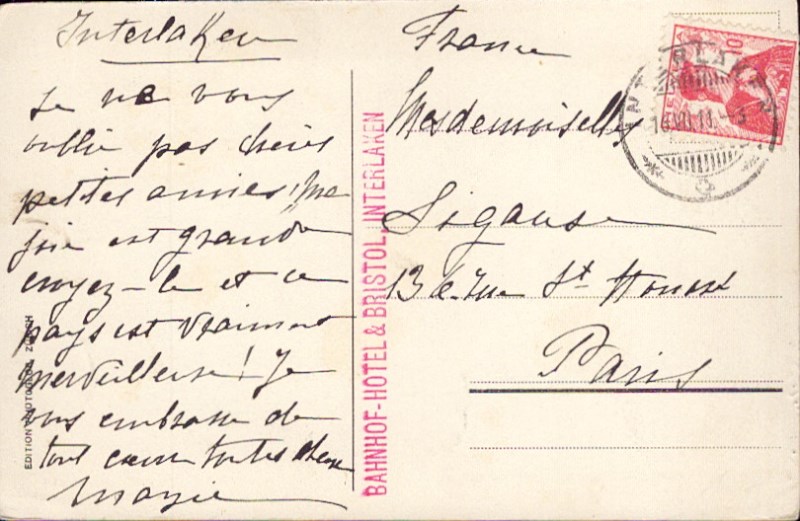 Interlaken
Je ne vous
oublie pas chères
petites amies! Ma
joie est grande
croyez-le et ce
pays est vraiment
merveilleux! Je
vous embrasse de
tout cœur toutes deux
EDITION ZÜRICH
BAHNHOF-HOTEL & BRISTOL, INTERLAKEN
France
Mesdemoiselles
13 rue St Honoré
Paris
10
INTERLAKEN
VII.11.-3